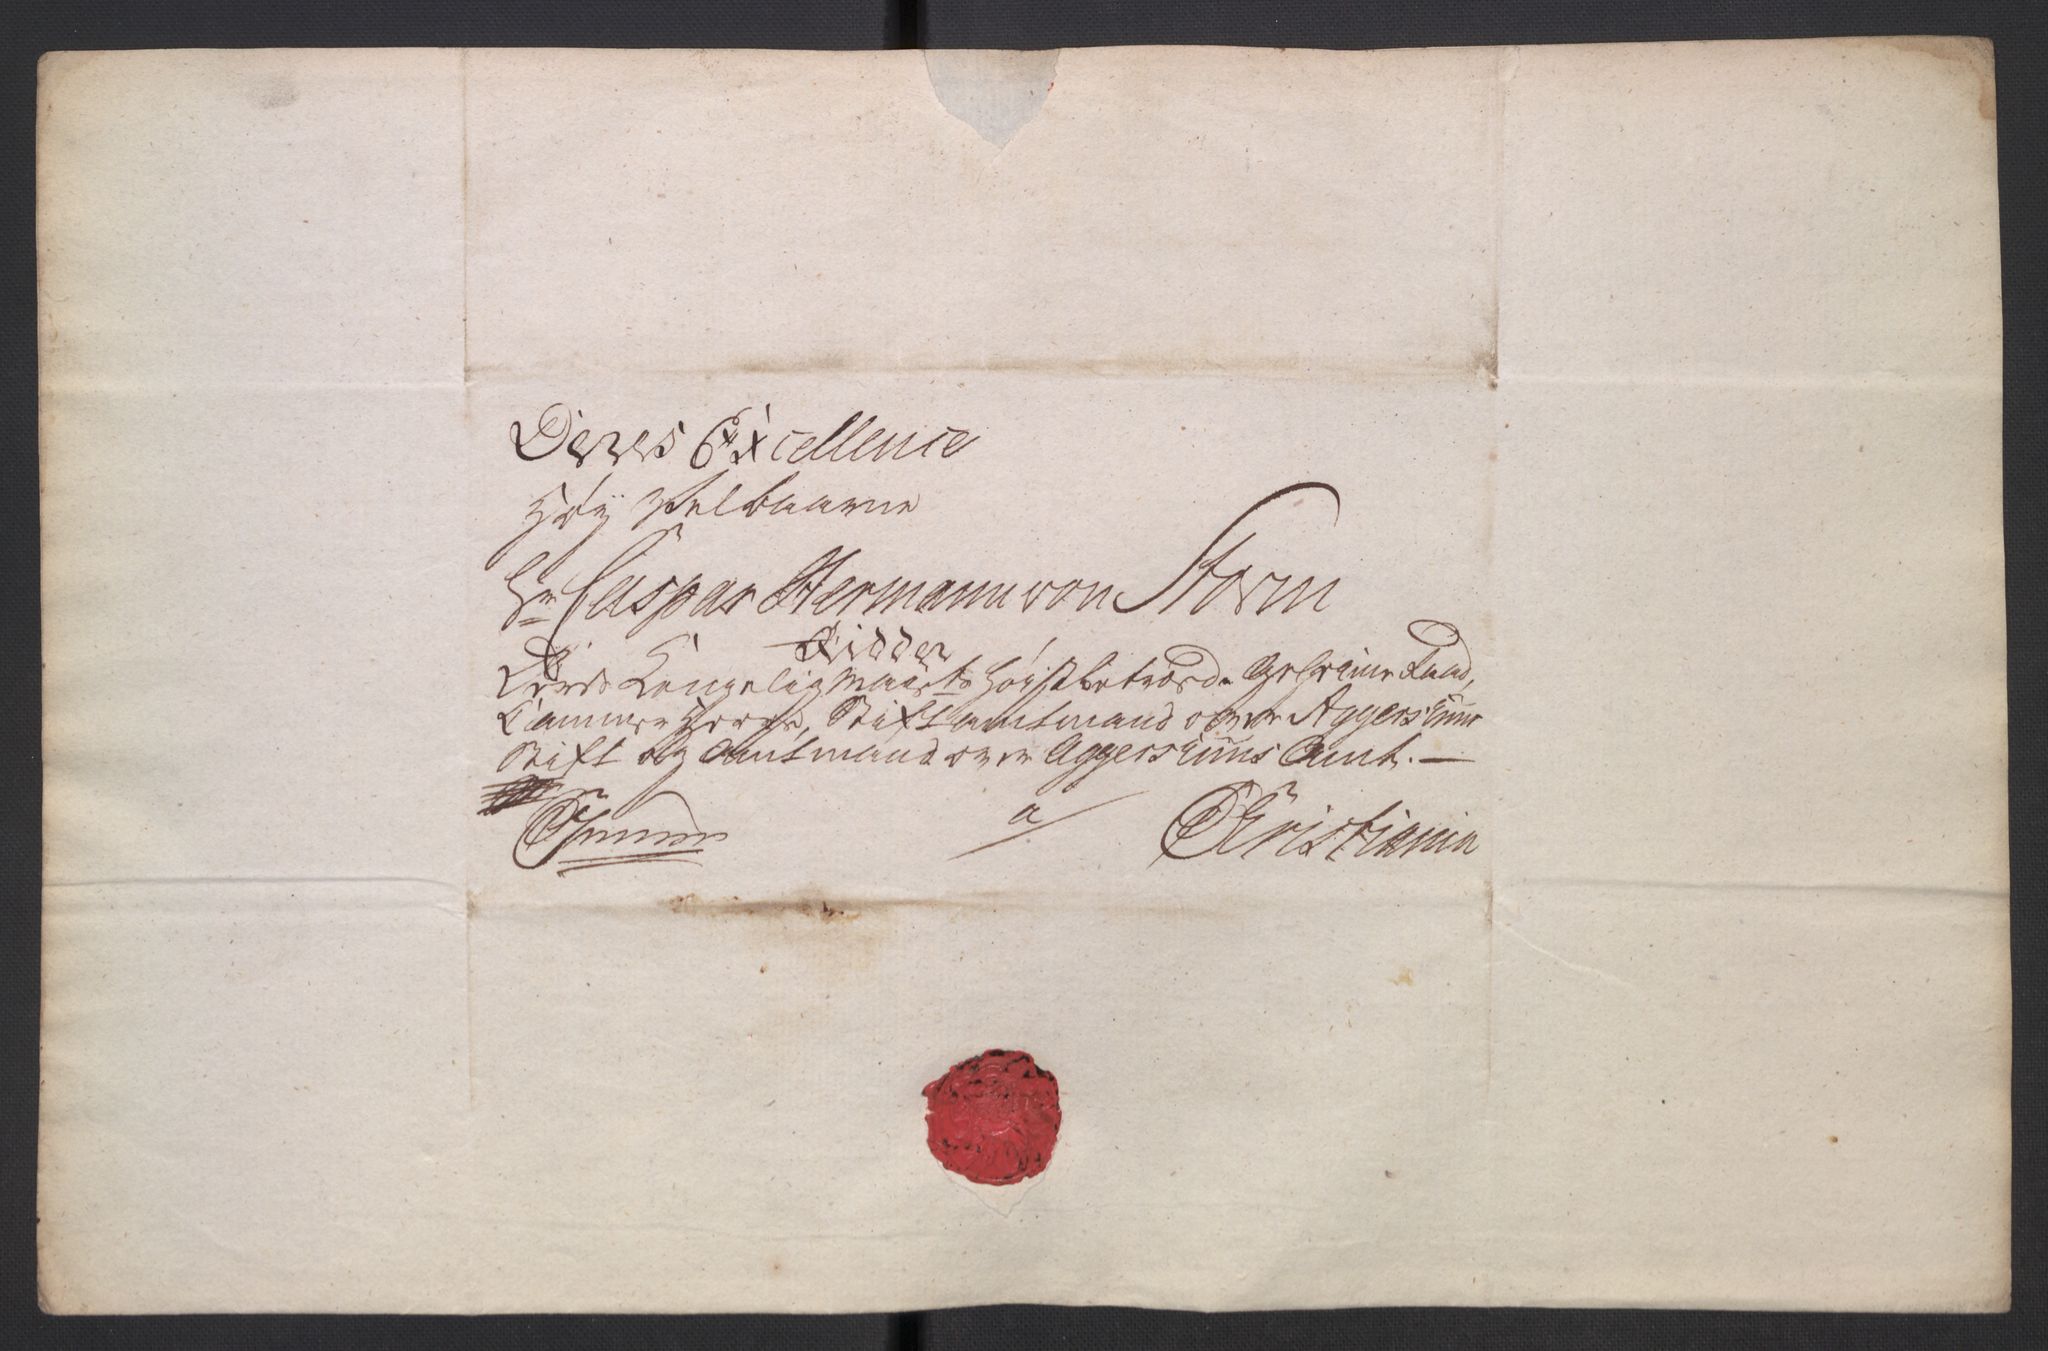 Deres Excellence
Høÿ Velbaarne
Hr Caspar Hermann von Storm
Ridder
Deres Kongelig Maÿsts Høÿstbetroede Geheime Raad,
Cammer Herre, Stiftamtmand over Aggershuus
Stift og Amtmand over Aggershuus Amt. —
a
Christiania